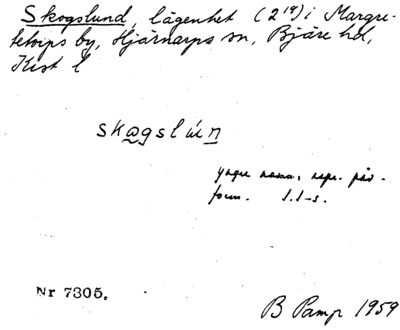 Skogslund, lägenhet (2¹⁹) i Margre-
tetorps by, Hjärnarps sn, Bjäre hd,
Krist l
skogslún
yngre namn, repr. påv.
form. s.l-s.
Nr 7305.
B Pamp 1959